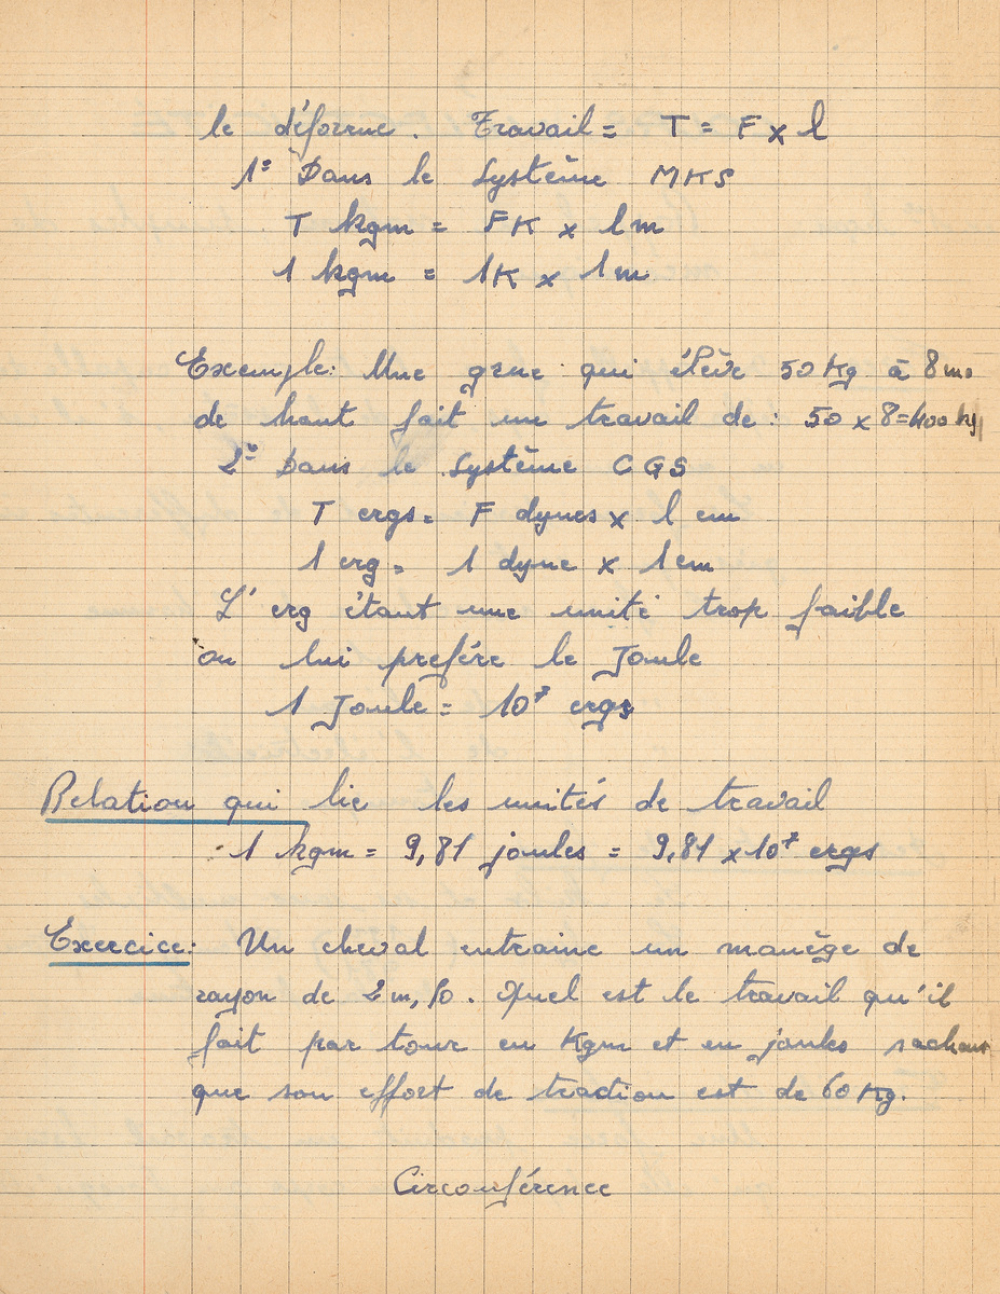 le déforme. Travail = T = F x l
1° Dans le système MKS
T kgm = FK x l m
1 kgm = 1K x 1 m
Exemple: Une grue qui élève 50 Kg à 8 m.
de haut fait un travail de : 50 x 8 = 400 kg
2° Dans le système CGS
T ergs = F dynes x l cm
1 erg = 1 dyne x 1 cm
L'erg étant une unité trop faible
on lui prefére le Joule
1 Joule = 10⁷ ergs
Relation qui lie les unités de travail
1 kgm = 9,81 joules = 9,81 x 10⁷ ergs
Exercice: Un cheval entraine un manège de
rayon de 2 m, . Quel est le travail qu'il
fait par tour en Kgm et en joules sachant
que son effort de traction est de 60 Kg.
Circonférence